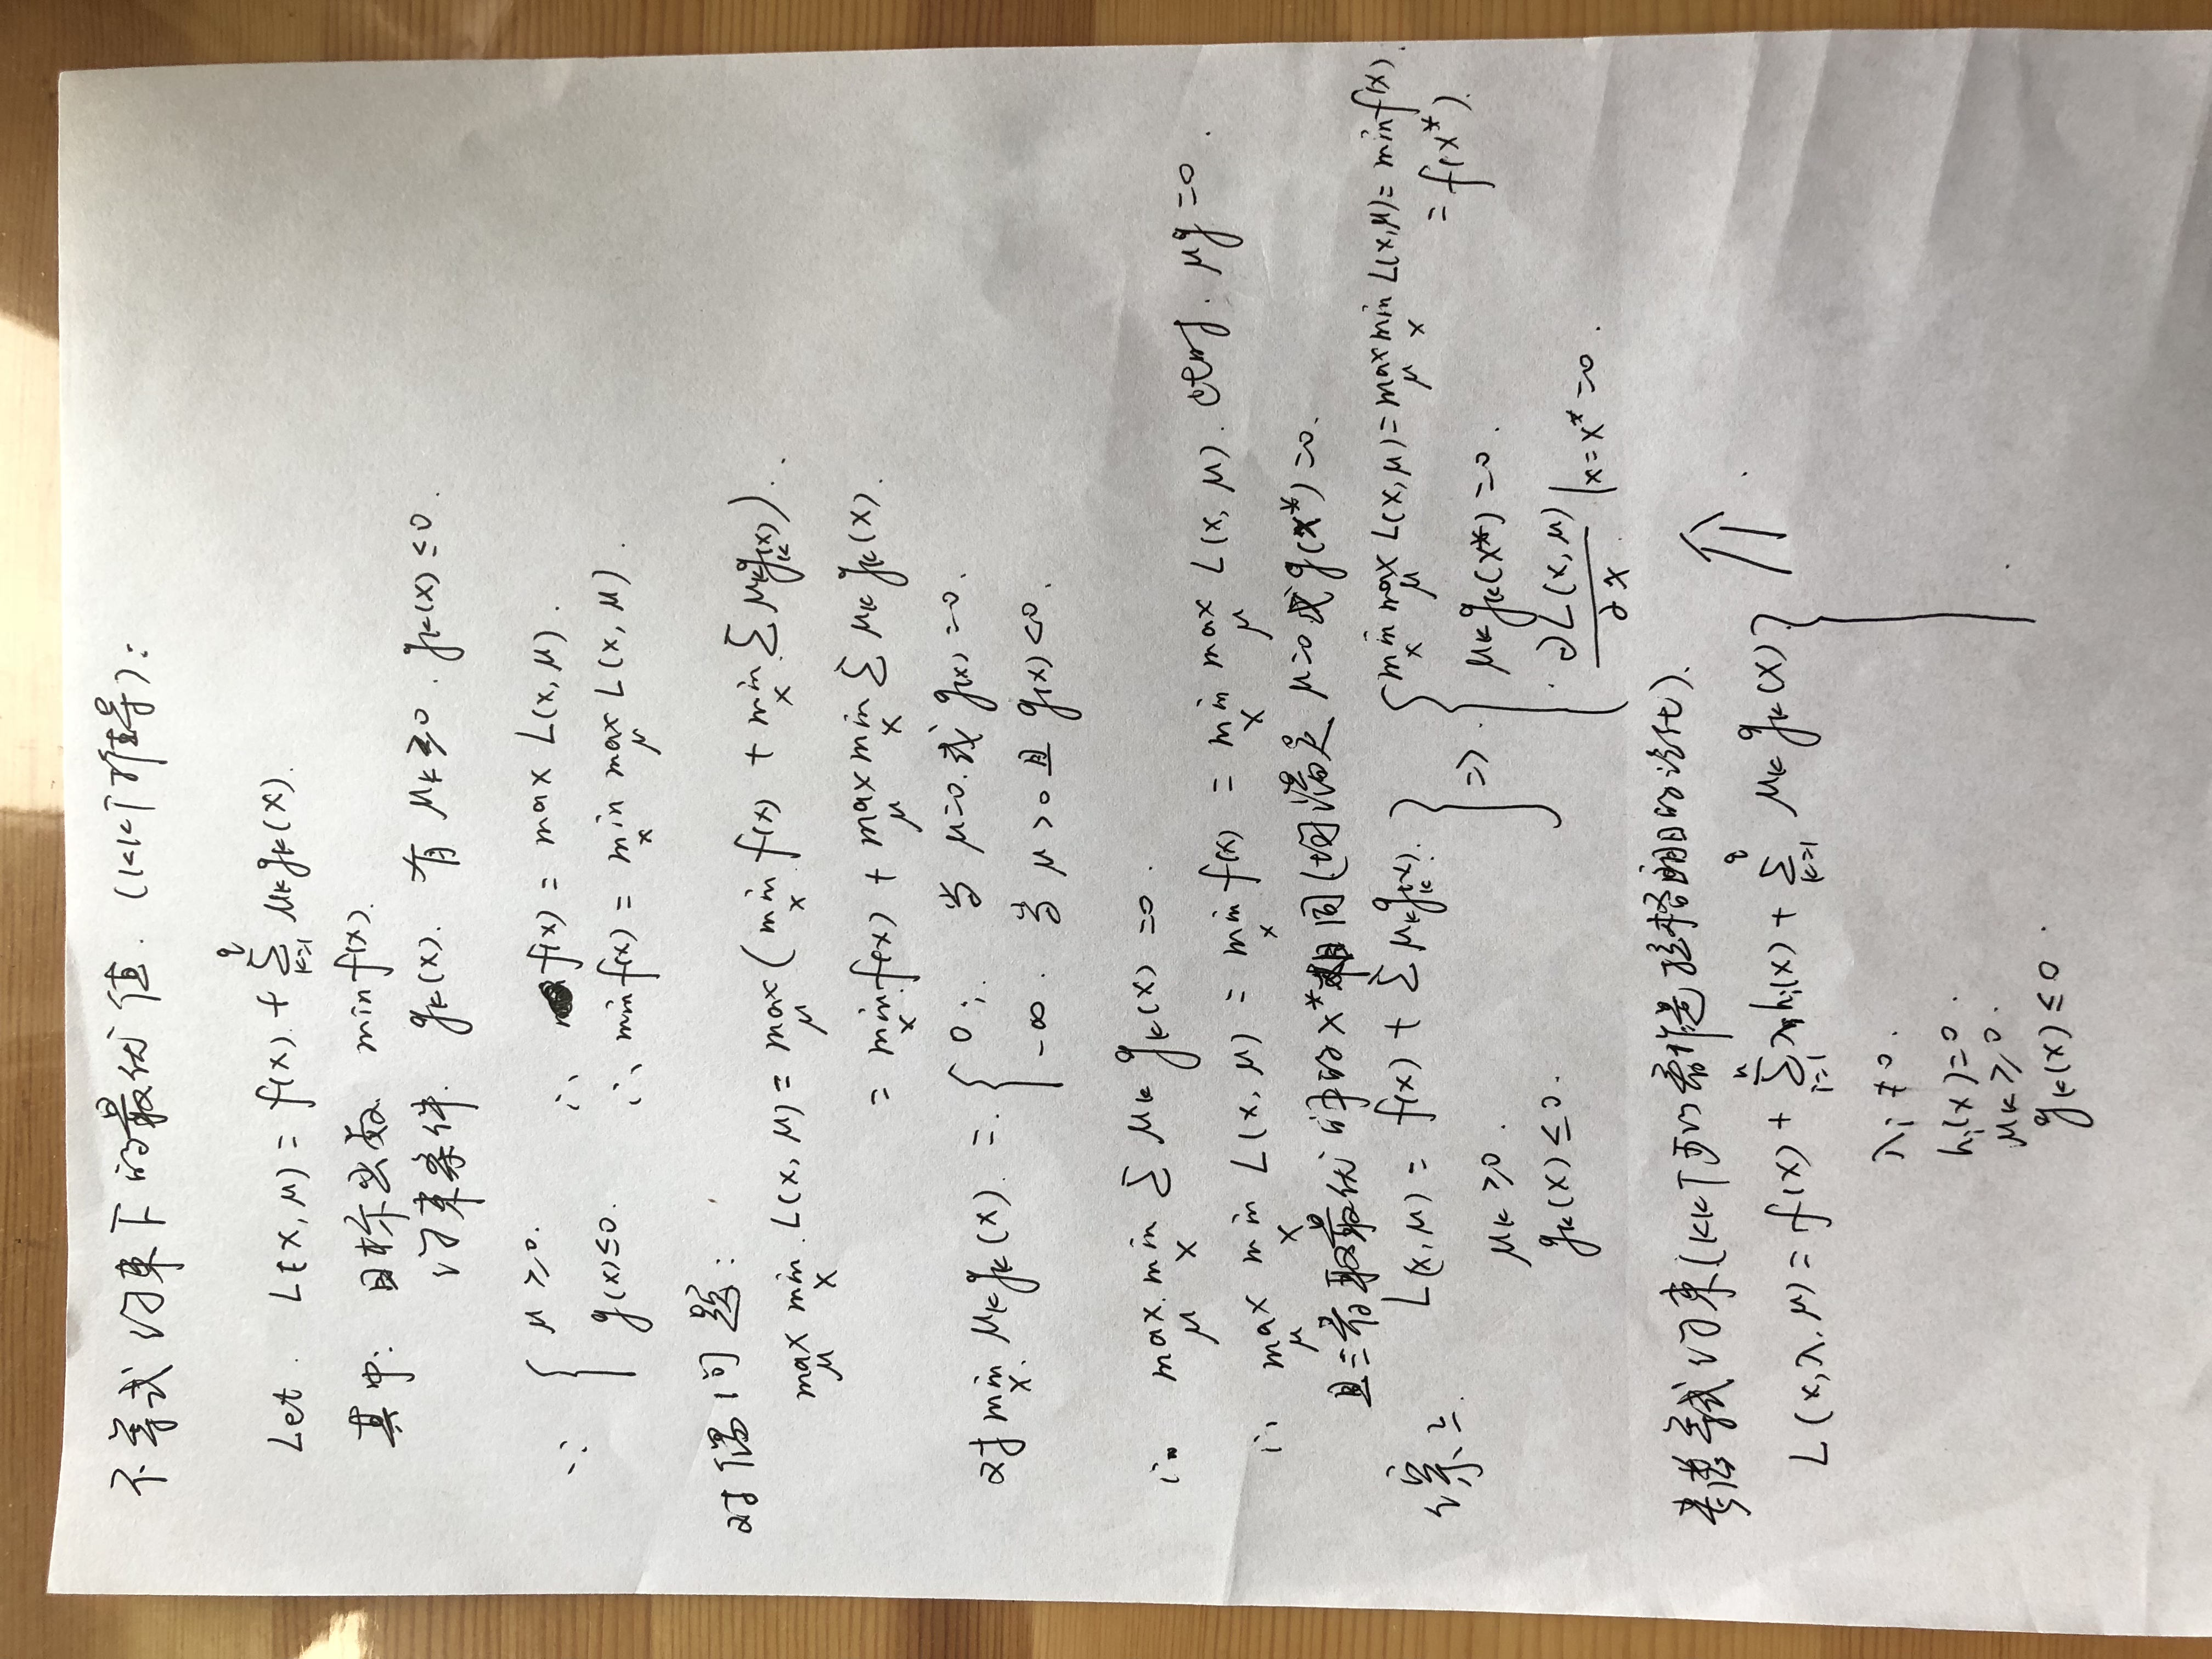 不等式约束下的最优值. (KKT推导):
Let. L(x, μ) = f(x) + ∑_{k=1}^{q} μ_k g_k(x).
其中: 目标函数 min f(x).
约束条件. g_k(x). 有 μ_k ≥ 0. g_k(x) ≤ 0.
∵ { μ ≥ 0. ∴ f(x) = max L(x, μ).
g(x) ≤ 0. ∴ min f(x) = min_x max_μ L(x, μ).
对偶问题:
max_μ min_x L(x, μ) = max_μ ( min_x f(x) + min_x ∑ μ_k g_k(x) ).
= min_x f(x) + max_μ min_x ∑ μ_k g_k(x).
对 min_x μ_k g_k(x) = { 0; 当 μ=0. 或 g(x) = 0.
-∞. 当 μ > 0 且 g(x) < 0.
∴ max_μ min_x ∑ μ_k g_k(x) = 0.
∴ max_μ min_x L(x, μ) = min_x f(x) = min_x max_μ L(x, μ). 此时. μg = 0.
且三者取最优时的 x* 相同 (均满足 μ=0 或 g(x*) = 0.
综上. L(x, μ) = f(x) + ∑ μ_k g_k(x). } ⇒ { min_x max_μ L(x, μ) = max_μ min_x L(x, μ) = min f(x).
= f(x*).
μ_k ≥ 0. μ_k g_k(x*) = 0.
g_k(x) ≤ 0. ∂L(x, μ)/∂x |x=x* = 0.
考虑等式约束 (KKT可以看作是拉格朗日的泛化).
L(x, λ, μ) = f(x) + ∑_{i=1}^{n} λ_i h_i(x) + ∑_{k=1}^{q} μ_k g_k(x) } ⇑
λ_i ≠ 0.
h_i(x) = 0.
μ_k ≥ 0.
g_k(x) ≤ 0.